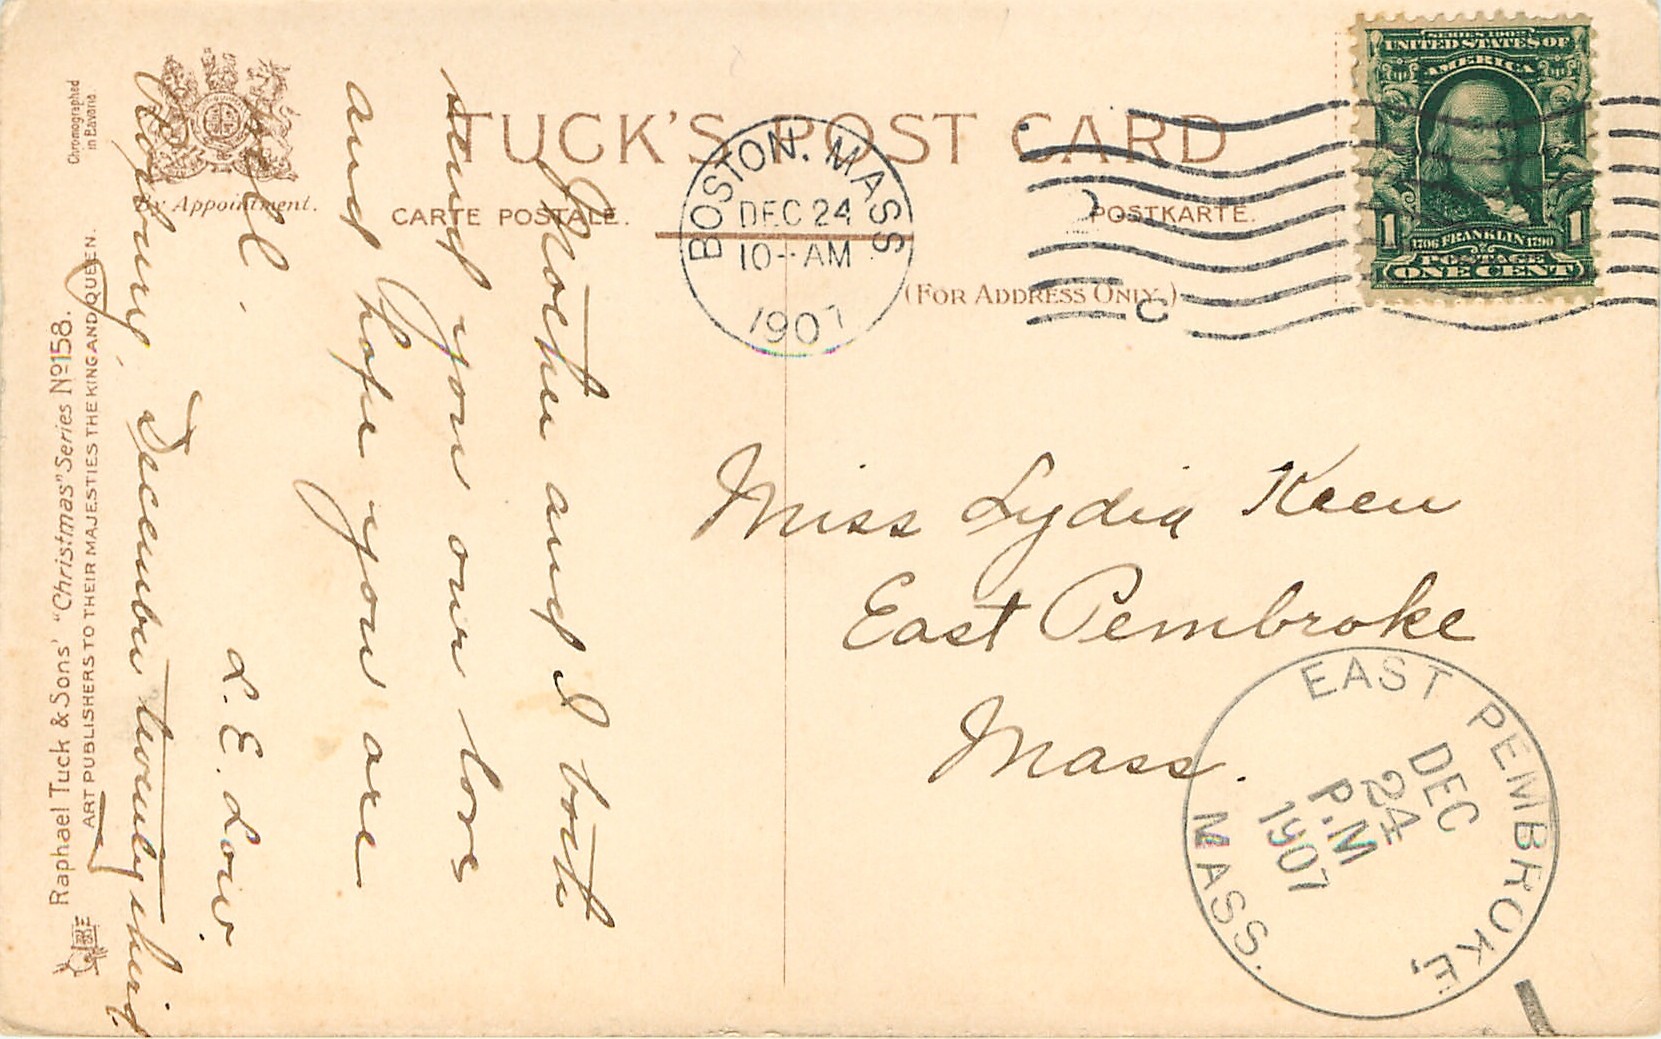 TUCK'S POST CARD
CARTE POSTALE.
POSTKARTE.
(FOR ADDRESS ONLY.)
By Appointment.
Chromographed
in Bavaria
Raphael Tuck & Sons' "Christmas" Series No 158.
ART PUBLISHERS TO THEIR MAJESTIES THE KING AND QUEEN.
BOSTON. MASS
DEC 24
10-AM
1907
SERIES 1902
UNITED STATES OF
AMERICA
1 1
1706 FRANKLIN 1790
POSTAGE
ONE CENT
Mother and I both
send you our love
and hope you are
well.
L. E. Low.
Roxbury, December twenty third.
Miss Lydia Keen
East Pembroke
Mass.
EAST PEMBROKE,
MASS.
DEC
24
P.M
1907
C